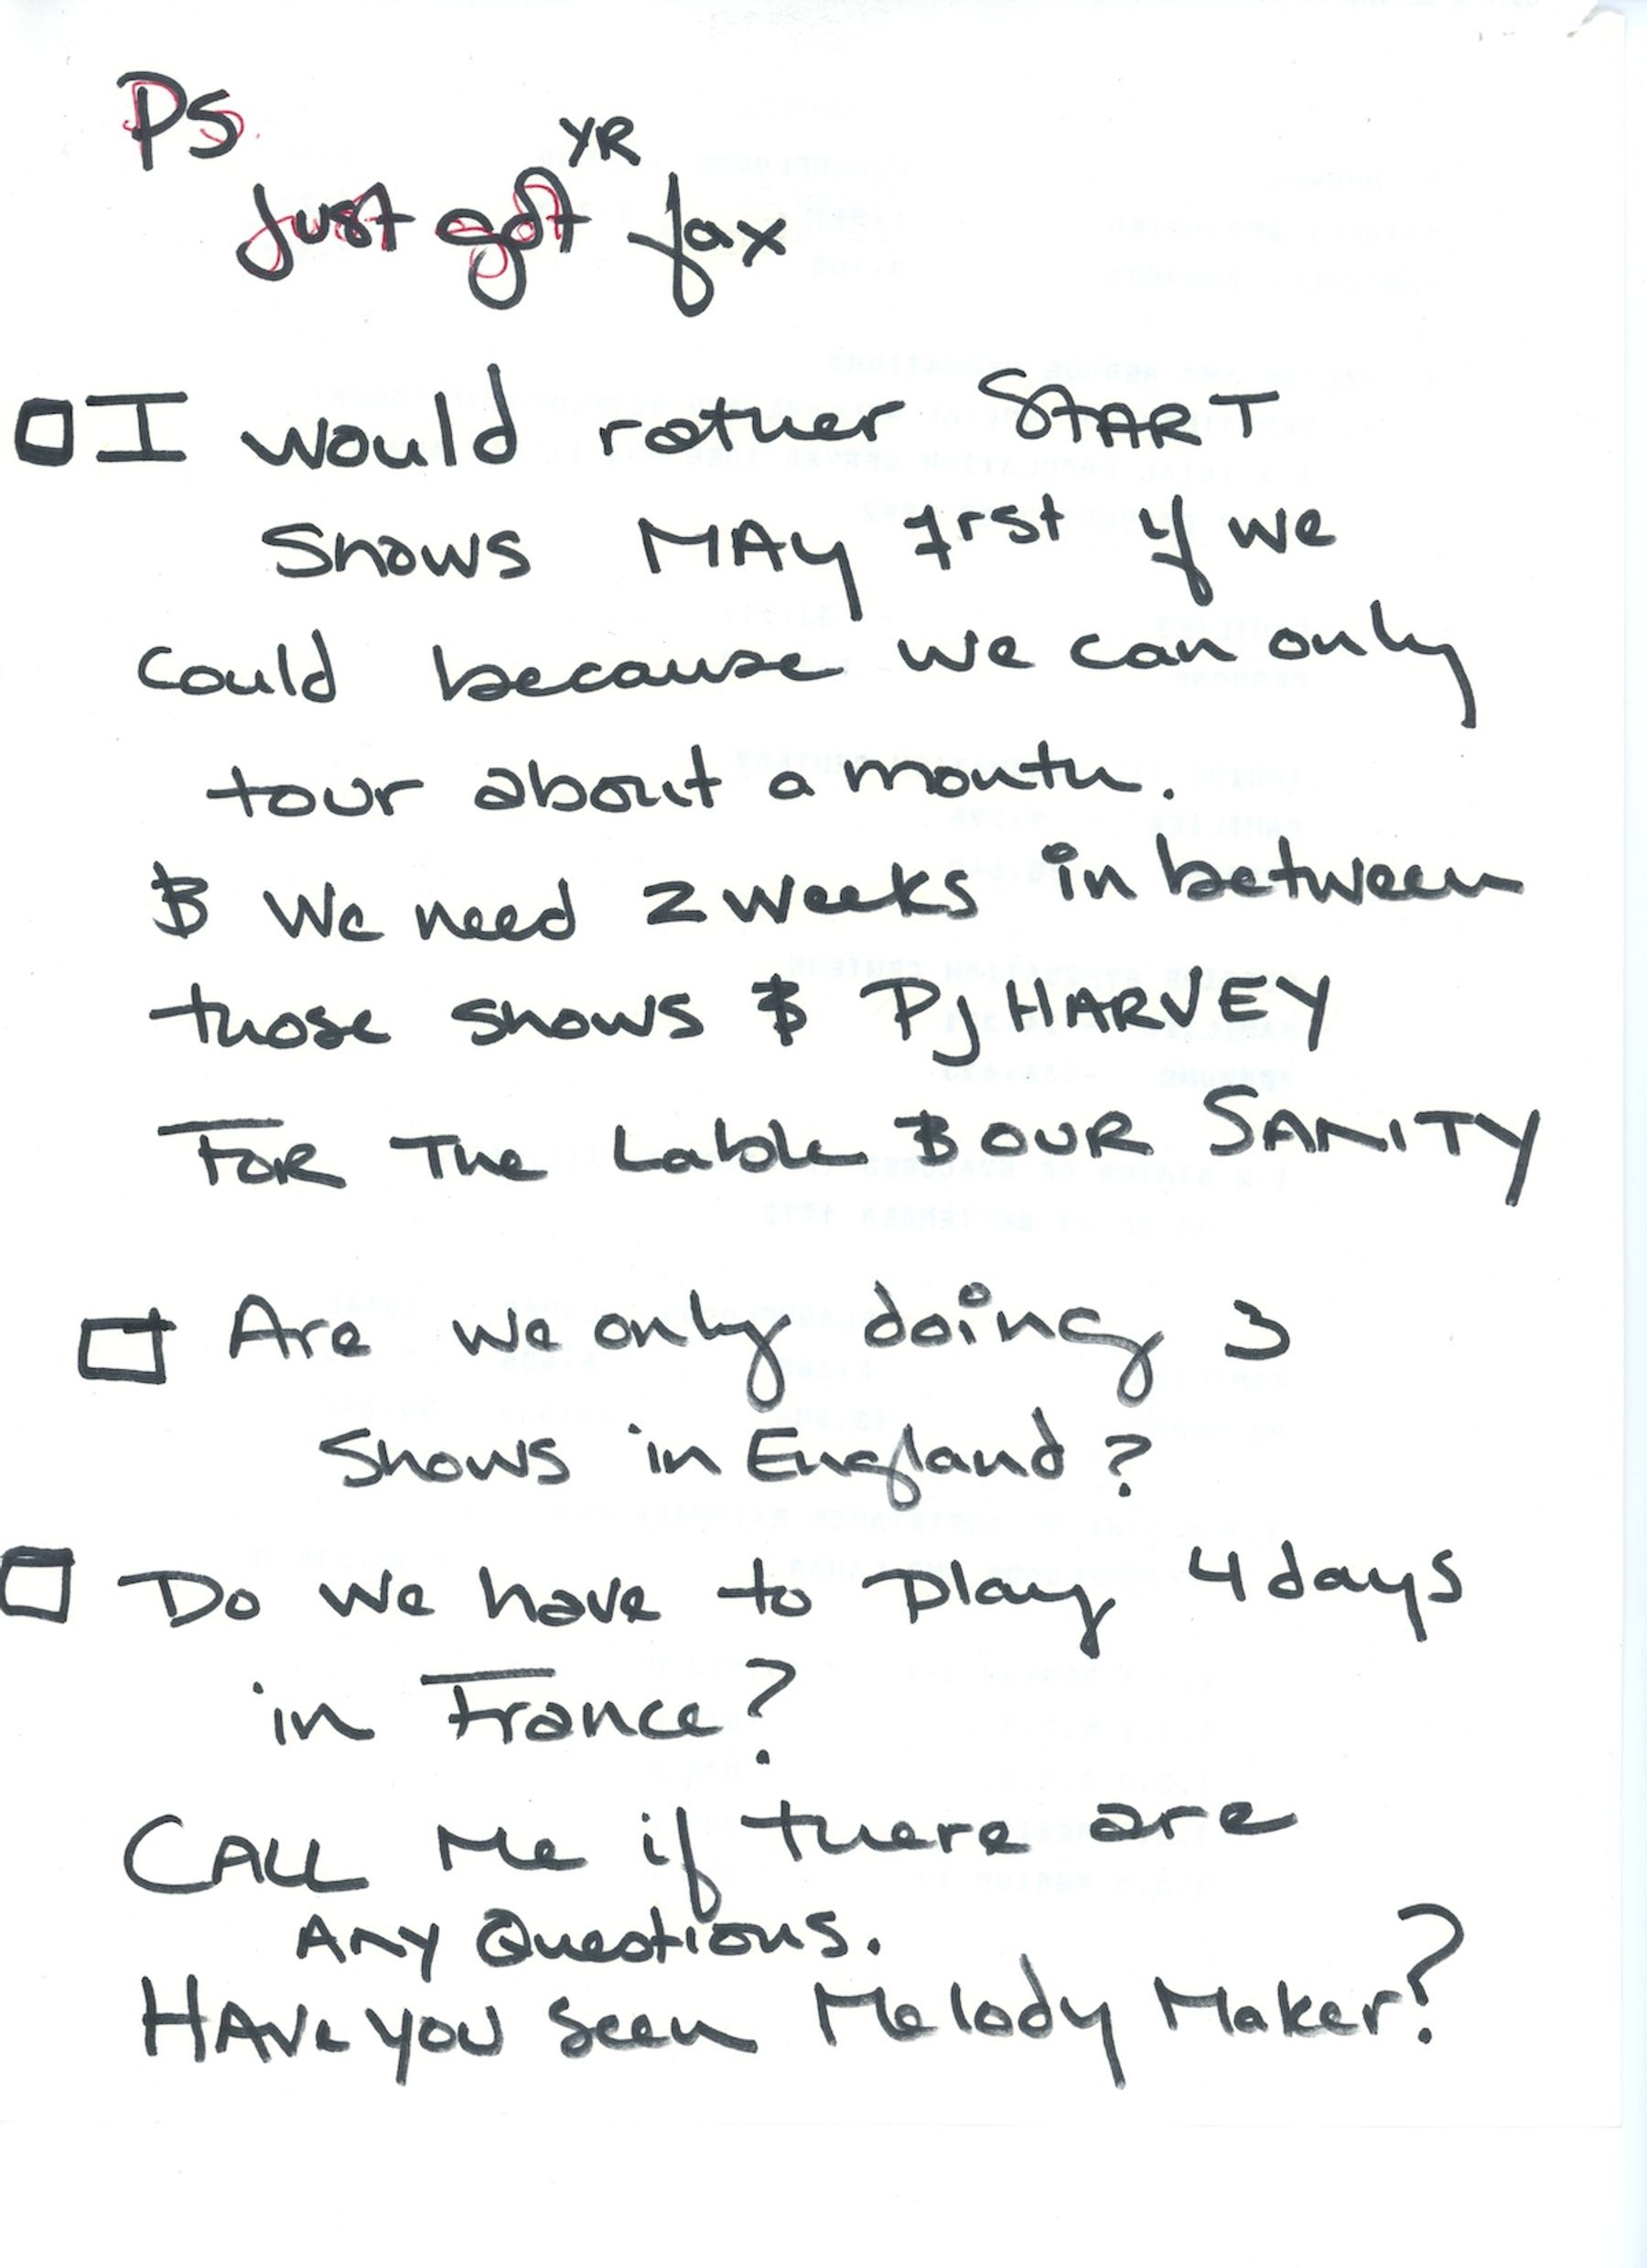 PS.
Just got YR fax
I would rather START
Shows MAY first if we
could because we can only
tour about a month.
& We need 2 weeks in between
those shows & PJ HARVEY
FOR THe Lable & OUR SANITY
Are we only doing 3
shows in England?
Do we have to play 4 days
in France?
CALL Me if there are
ANY Questions.
HAVe you seen Melody Maker?